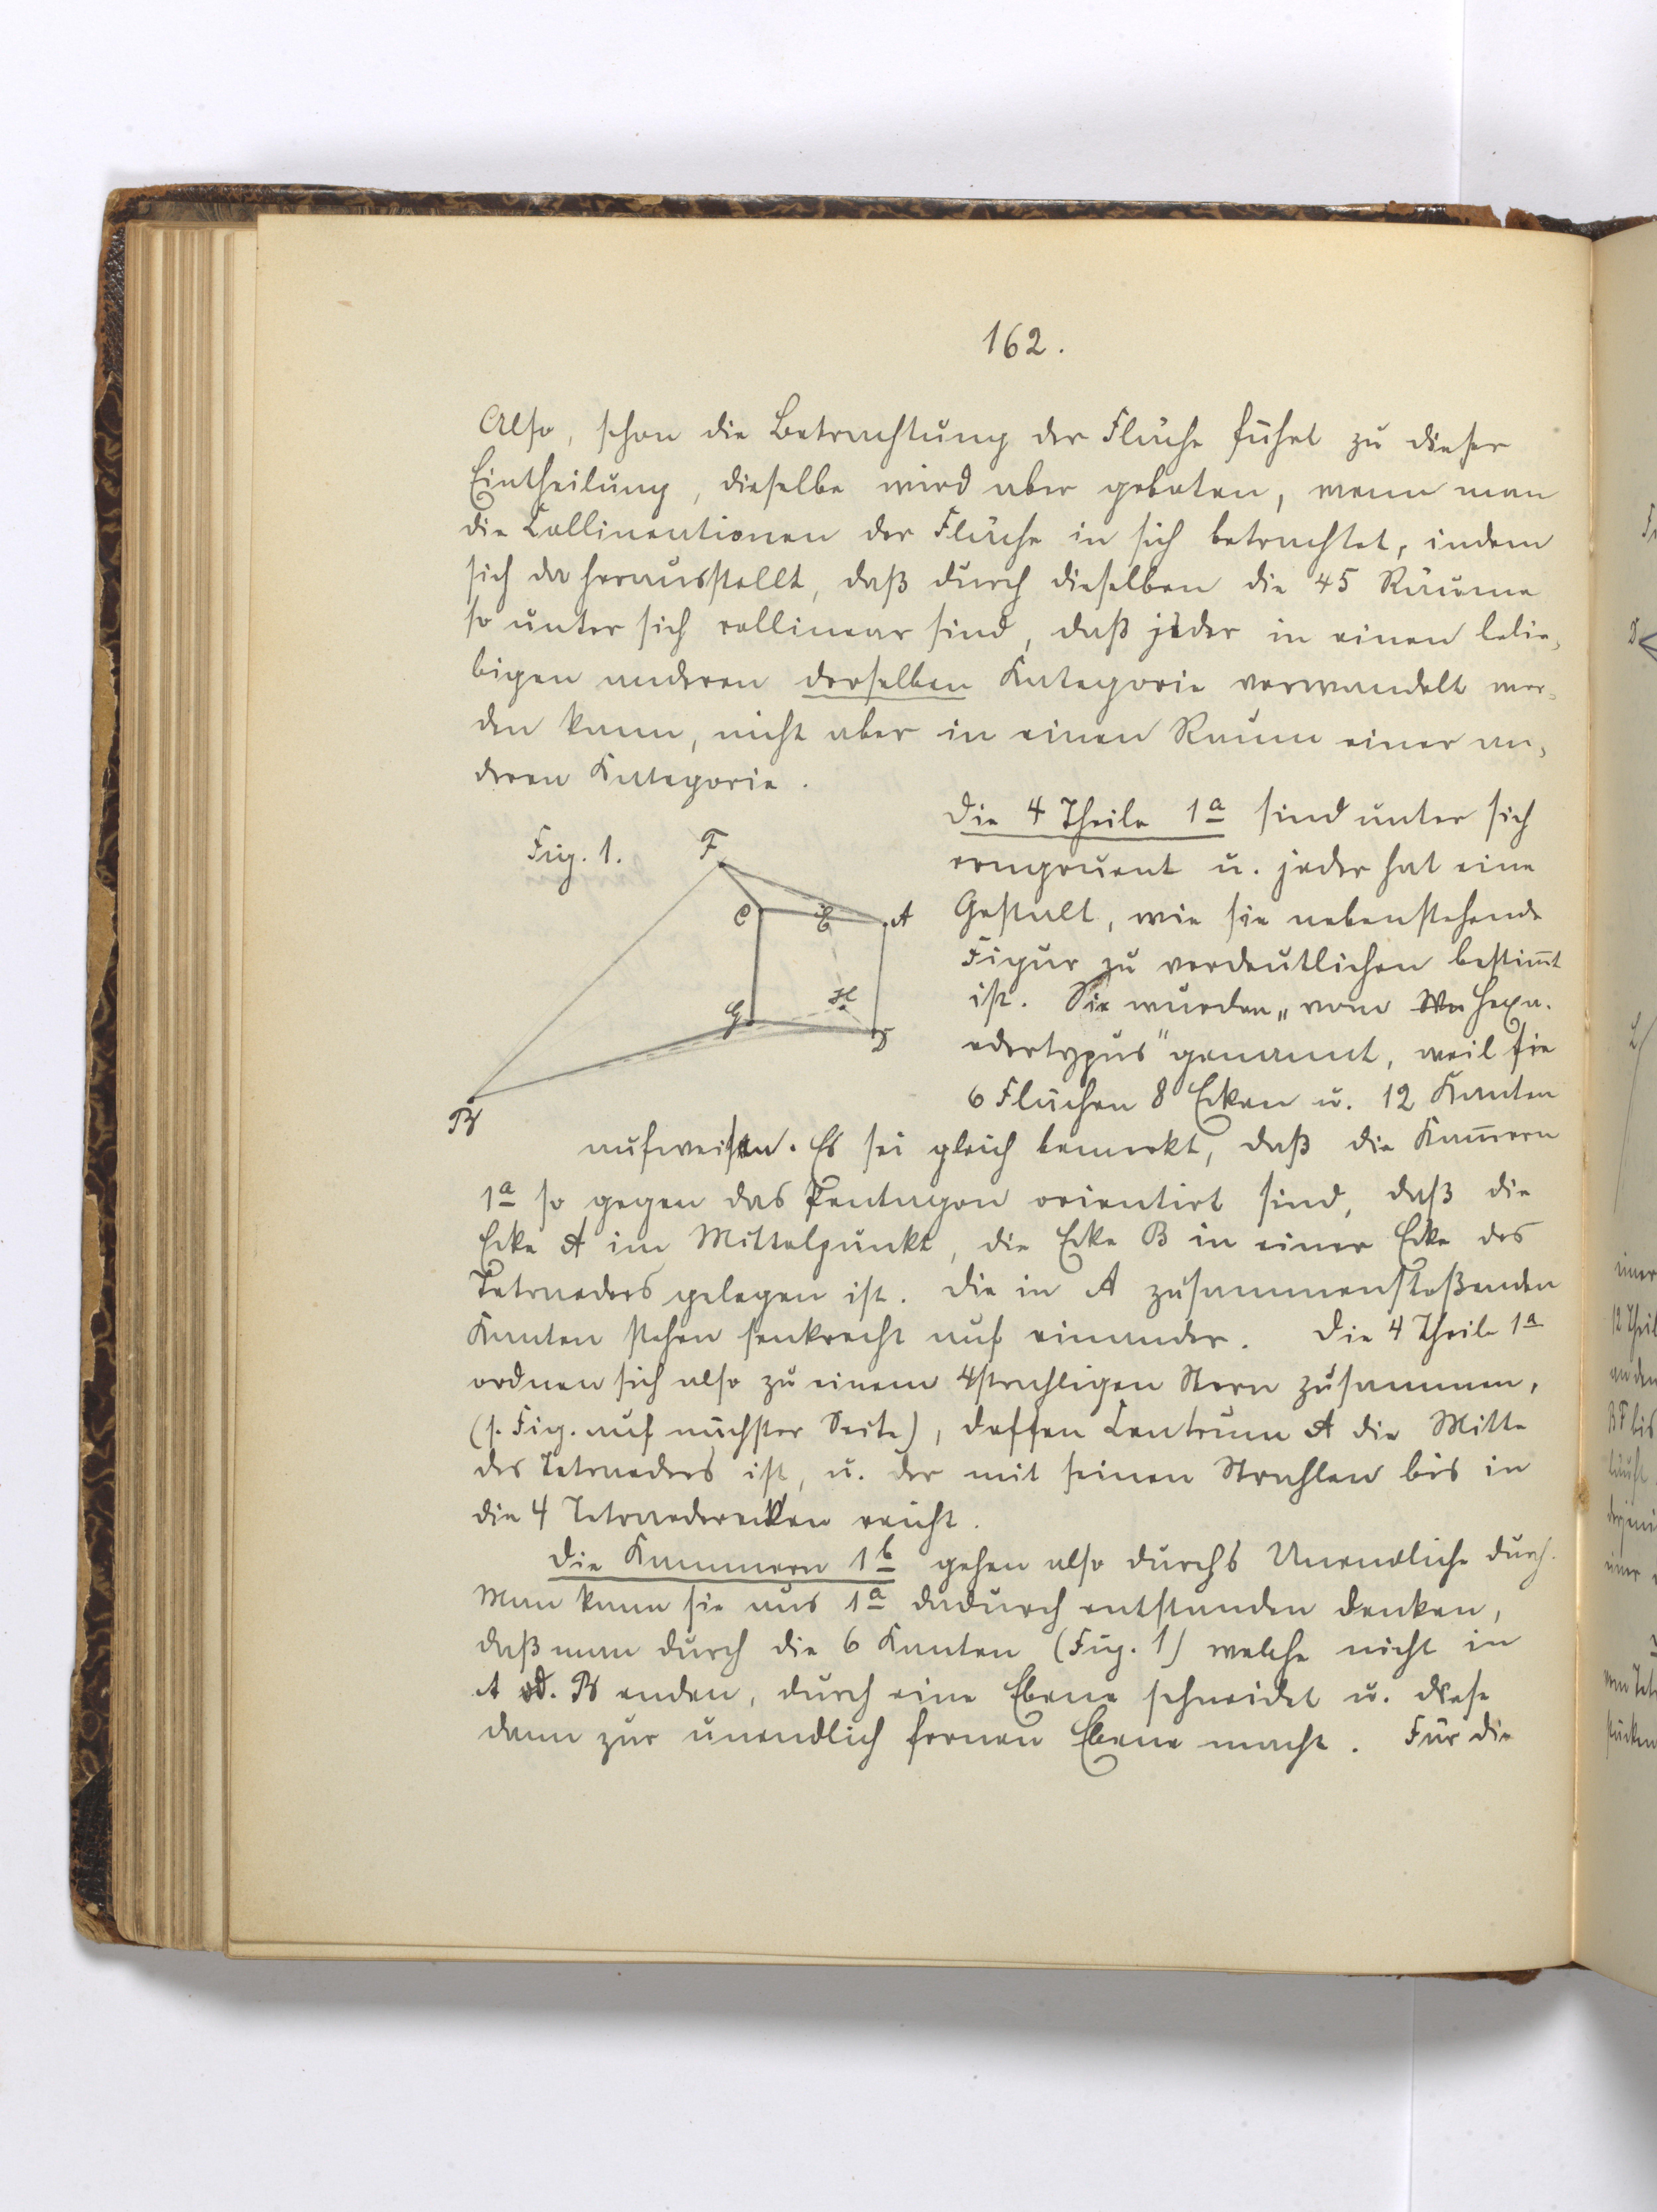 162.
Also, schon die Betrachtung der Fläche führt zu dieser
Eintheilung, dieselbe wird aber geboten, wenn man
die Collineationen der Fläche in sich betrachtet, indem
sich da herausstellt, daß durch dieselben die 45 Räume
so unter sich collinear sind, daß jeder in einen belie-
bigen anderen derselben Kategorie verwandelt wer-
den kann, nicht aber in einen Raum einer an-
deren Kategorie.
Die 4 Theile 1a sind unter sich
congruent u. jeder hat eine
Gestalt, wie sie nebenstehende
Figur zu verdeutlichen bestim̅t
ist. Sie wurden „vom Hexa-
edertypus" genannt, weil sie
6 Flächen 8 Ecken u. 12 Kanten
Fig. 1.
F
C
E
A
G
H
D
B
aufweisen. Es sei gleich bemerkt, daß die Kam̅ern
1a so gegen das Pentagon orientirt sind, daß die
Ecke A im Mittelpunkt, die Ecke B in einer Ecke des
Tetraeders gelegen ist. Die in A zusammenstoßenden
Kanten stehen senkrecht auf einander. Die 4 Theile 1a
ordnen sich also zu einem 4strahligen Stern zusammen,
(s. Fig. auf nächster Seite), dessen Centrum A die Mitte
des Tetraeders ist, u. der mit seinen Strahlen bis in
die 4 Tetraederecken reicht.
Die Kammern 1b gehen also durchs Unendliche durch.
Man kann sie aus 1a dadurch entstanden denken,
daß man durch die 6 Kanten (Fig. 1) welche nicht in
A od. B enden, durch eine Ebene schneidet u. diese
dann zur unendlich fernen Ebene macht. Für die